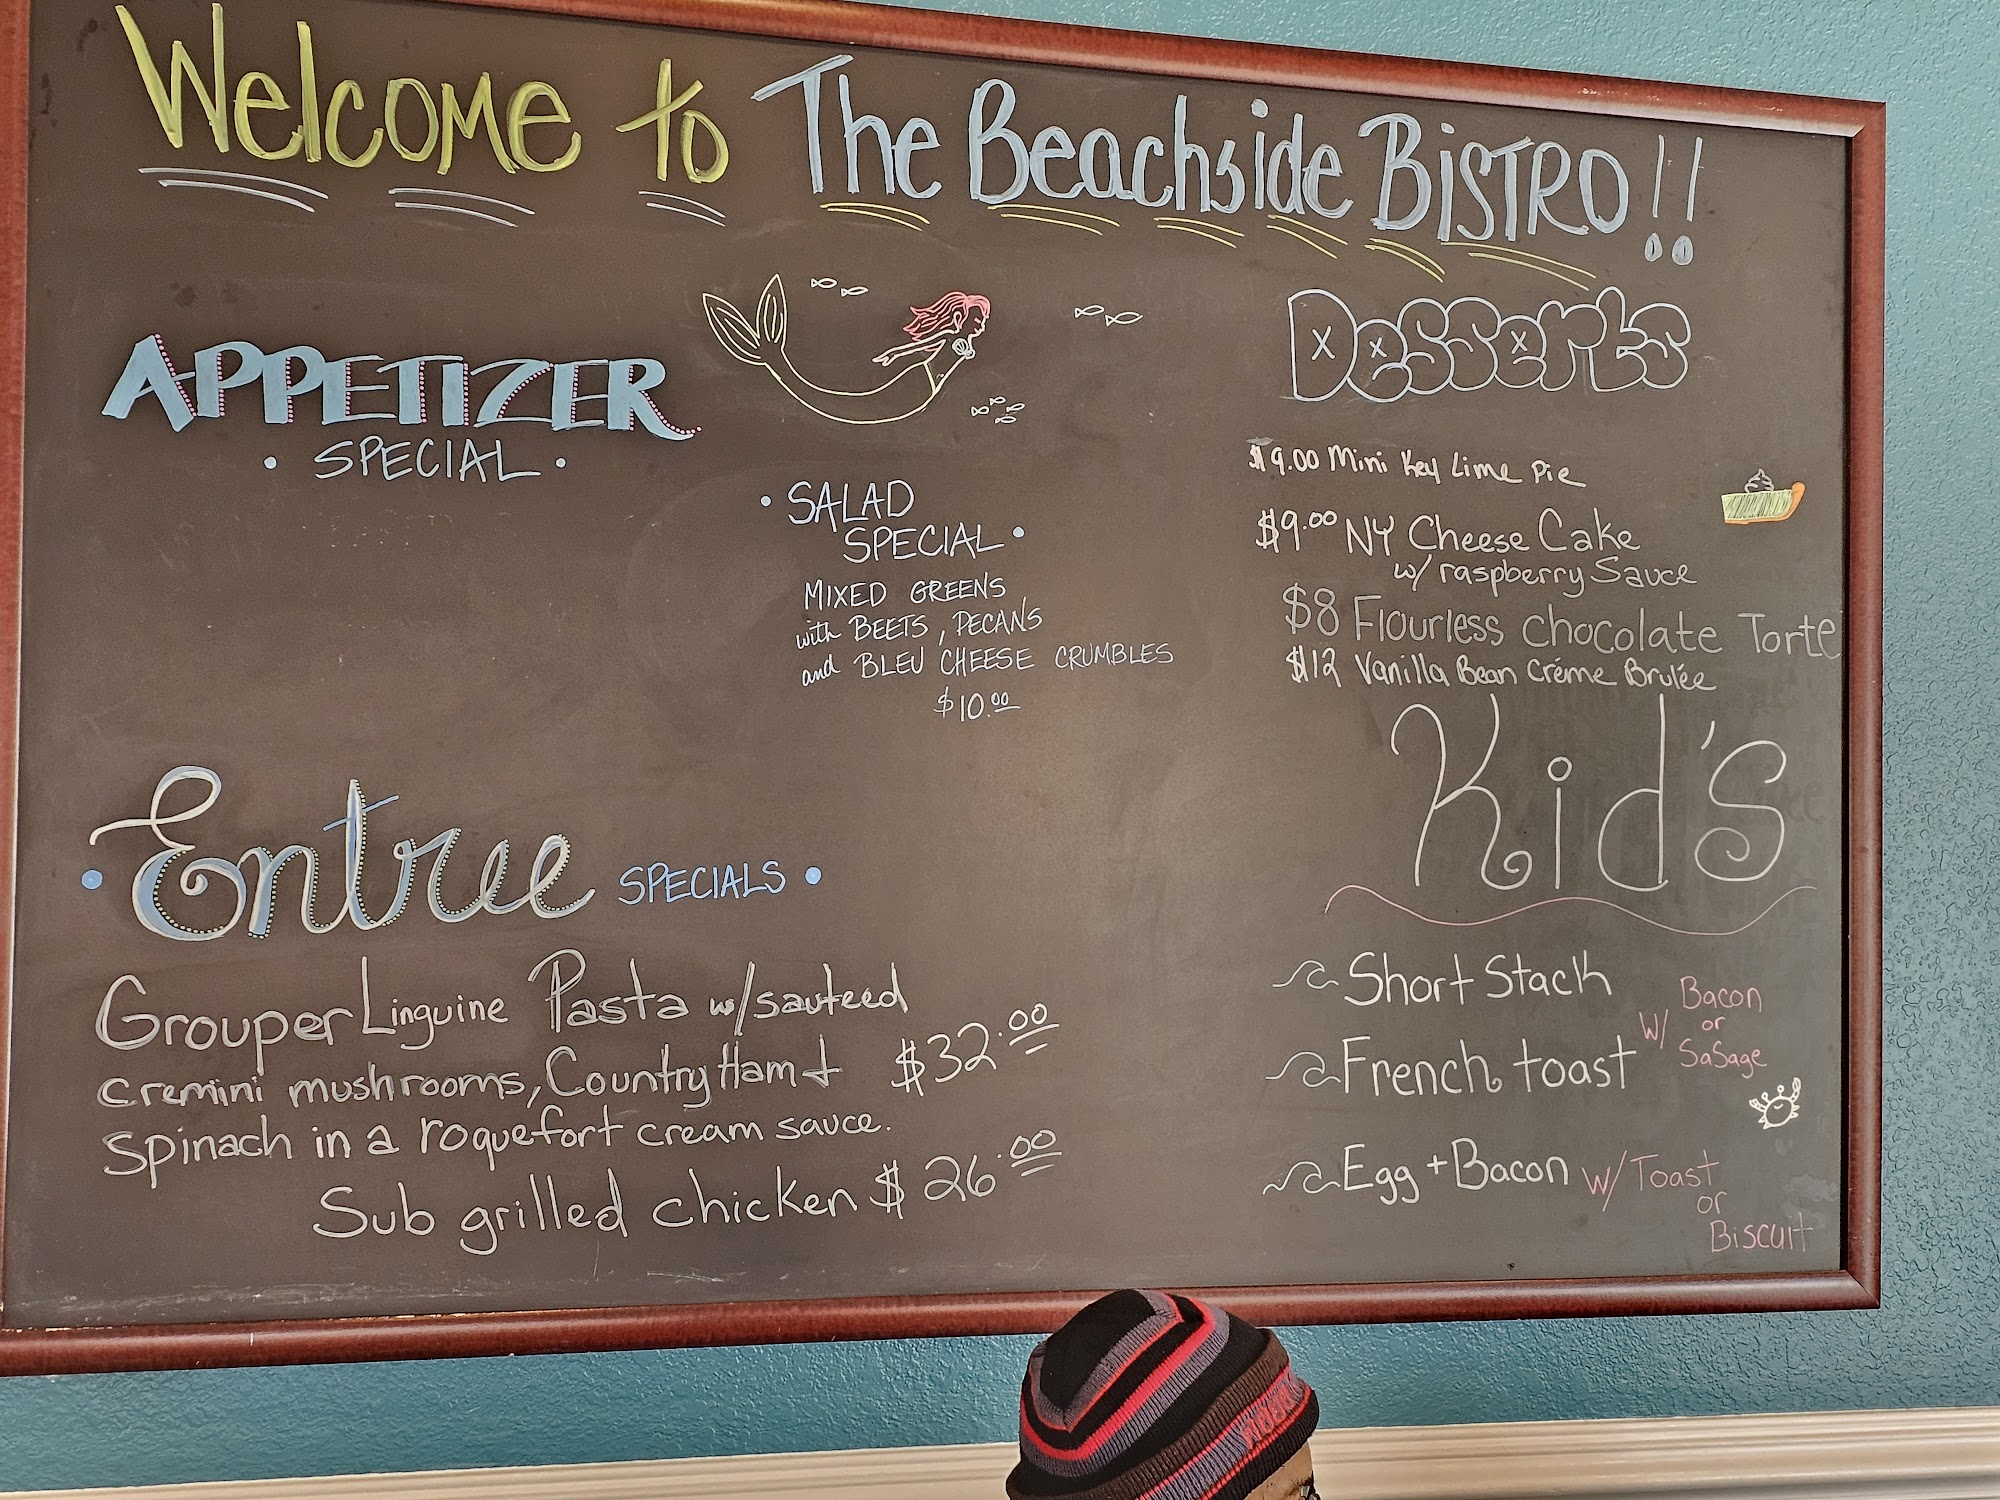 Welcome to The Beachside Bistro!!
APPETIZER
• SPECIAL •
• SALAD
SPECIAL •
MIXED GREENS
with BEETS, PECANS
and BLEU CHEESE CRUMBLES
$10.00
Entree SPECIALS
Grouper Linguine Pasta w/ sauteed
cremini mushrooms, Country Ham +
spinach in a roquefort cream sauce.
$32.00
Sub grilled chicken $26.00
Desserts
$9.00 Mini Key Lime Pie
$9.00 NY Cheese Cake
w/ raspberry Sauce
$8 Flourless chocolate Torte
$12 Vanilla Bean Créme Brulée
Kid's
Short Stack
French toast
W/ Bacon
or
SaSage
Egg + Bacon W/ Toast
or
Biscuit